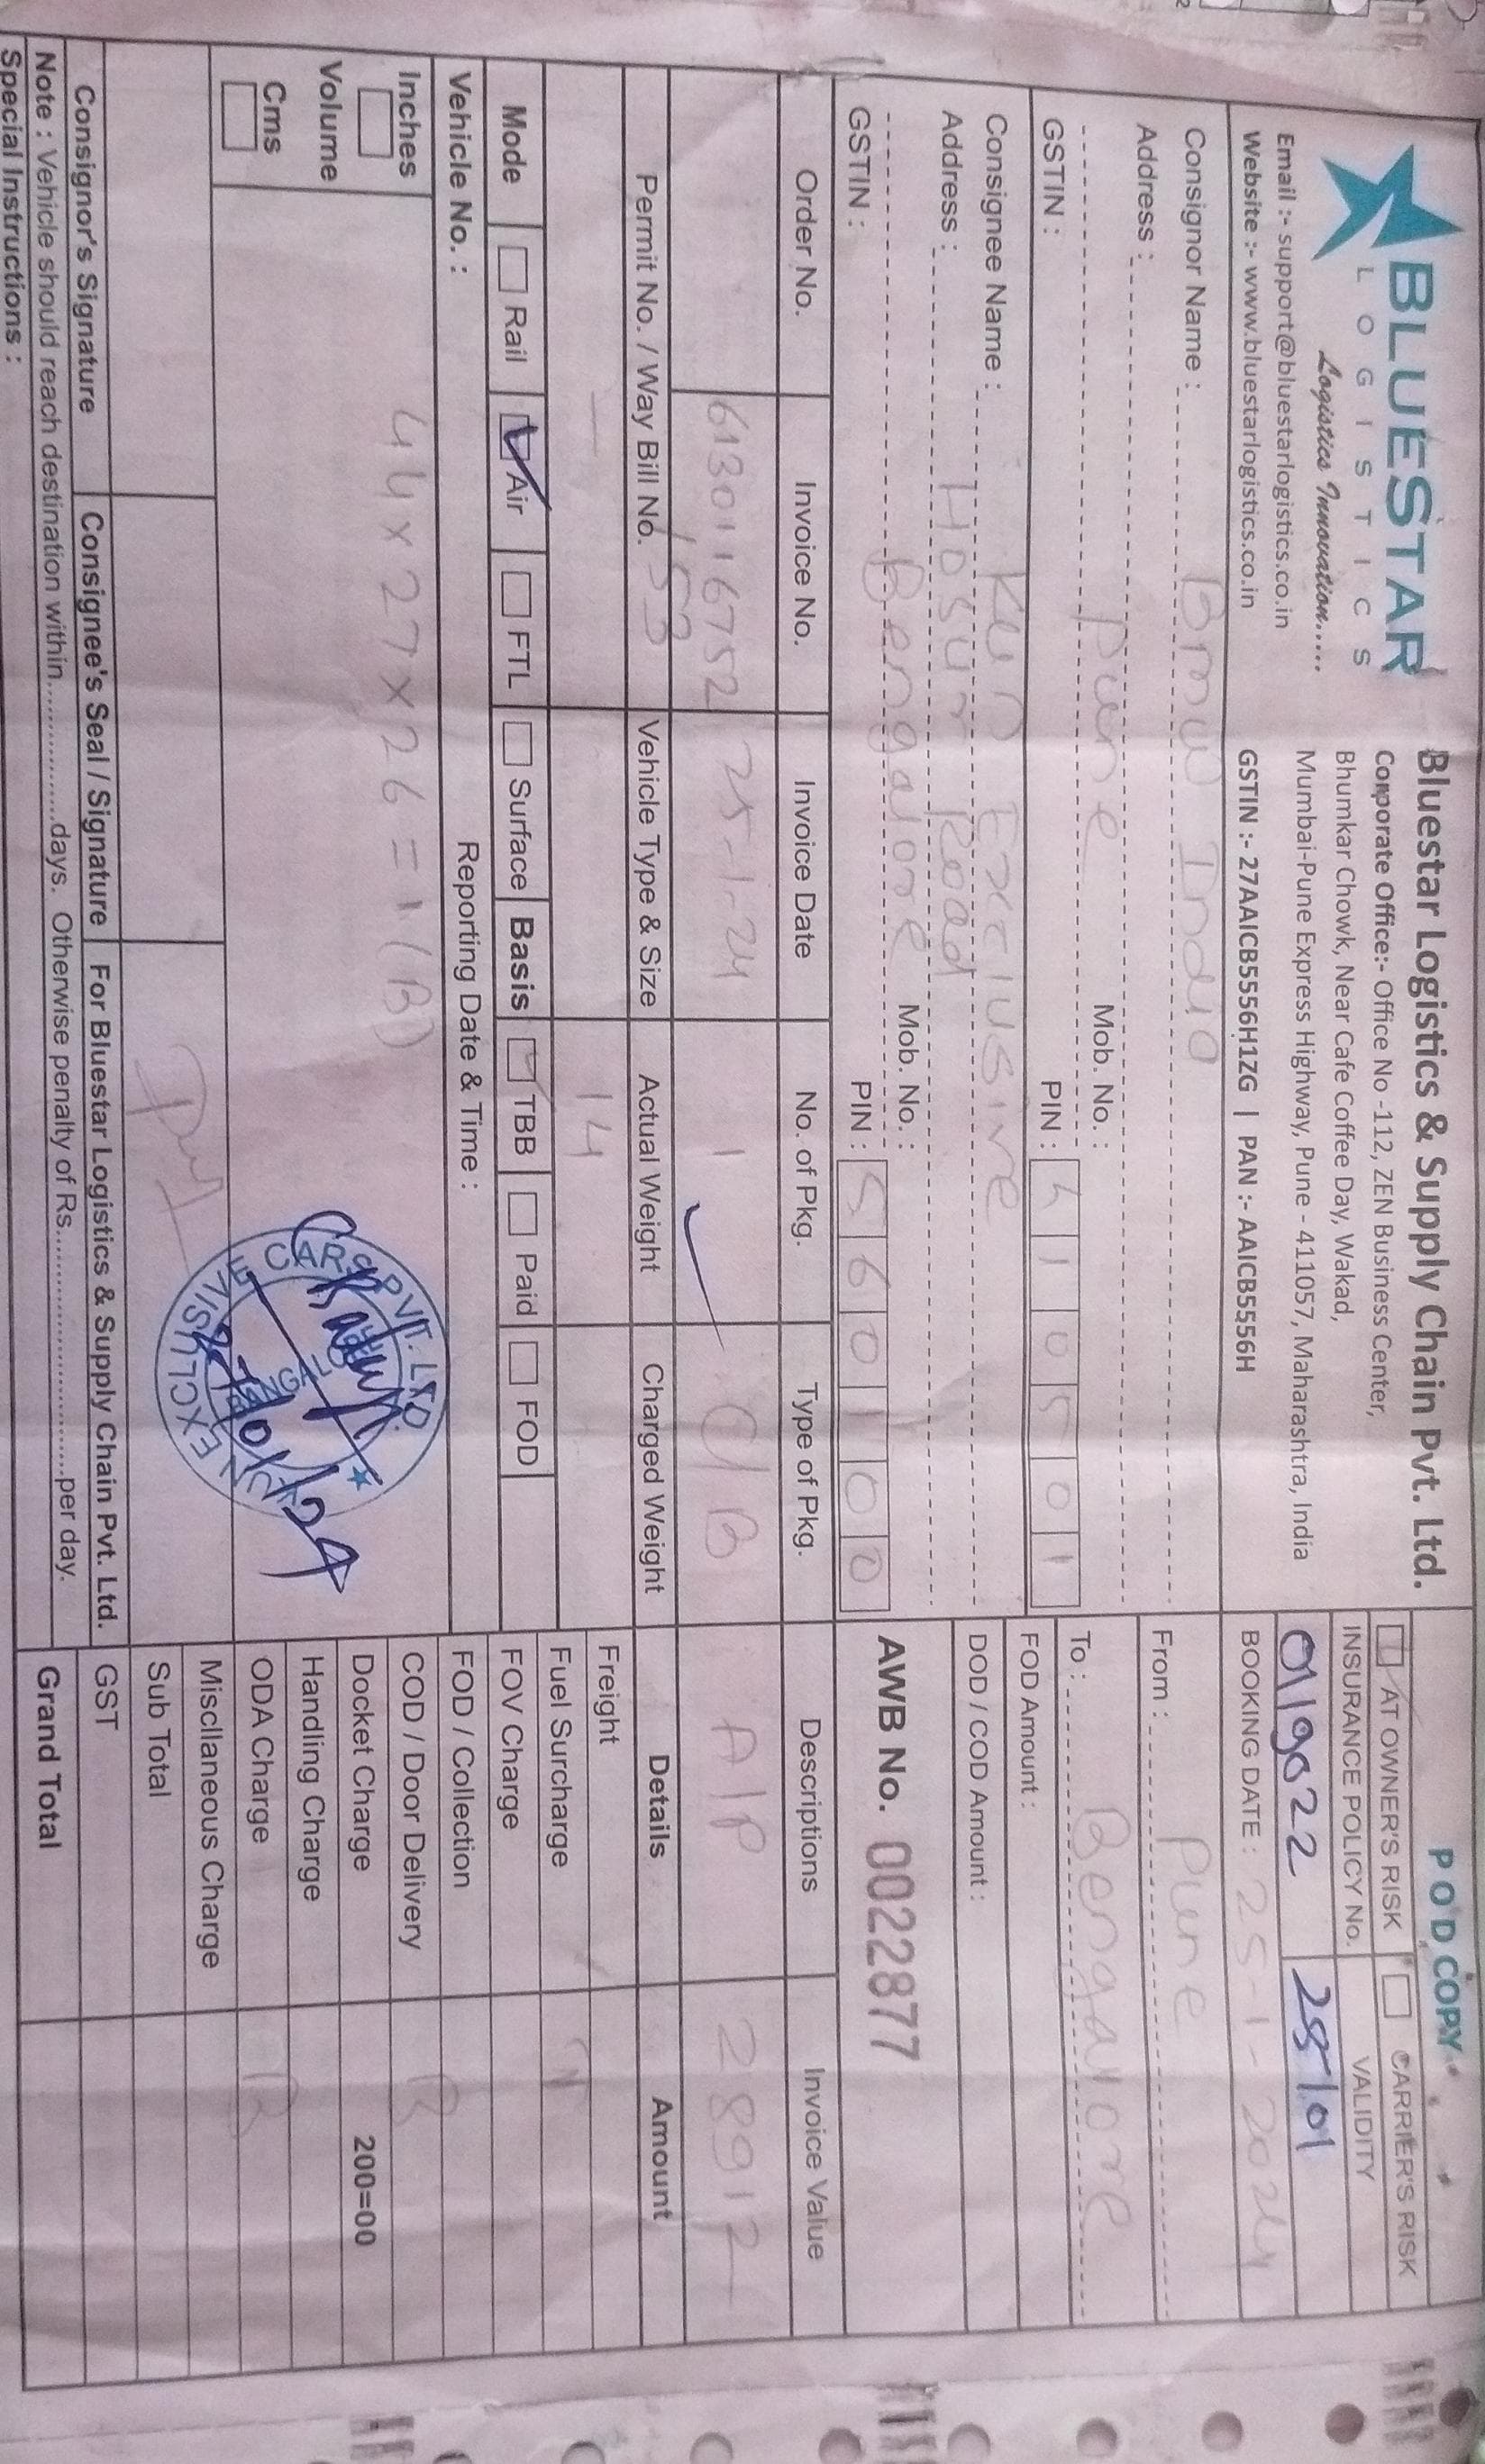 BLUESTAR
LOGISTICS
Logistics Innovation.....
Email :- support@bluestarlogistics.co.in
Website :- www.bluestarlogistics.co.in
Bluestar Logistics & Supply Chain Pvt. Ltd.
Corporate Office:- Office No -112, ZEN Business Center,
Bhumkar Chowk, Near Cafe Coffee Day, Wakad,
Mumbai-Pune Express Highway, Pune - 411057, Maharashtra, India
GSTIN :- 27AAICB5556H1ZG | PAN :- AAICB5556H
POD COPY
AT OWNER'S RISK CARRIER'S RISK
INSURANCE POLICY No. VALIDITY
0119022 25/01
BOOKING DATE : 25-1-2024
Consignor Name : Bmw India
Address :
Pune Mob. No. :
GSTIN : PIN : 410501
From : Pune
To : Bengalore
FOD Amount :
DOD / COD Amount :
AWB No. 0022877
Consignee Name : Kun Exclusive
Address : Hosur Road
Bengalore Mob. No. :
GSTIN : PIN : 560100
Order No. Invoice No. Invoice Date No. of Pkg. Type of Pkg. Descriptions Invoice Value
6130116752 25-1-24 1 C/B A/P 28912
/53
Permit No. / Way Bill No. Vehicle Type & Size Actual Weight Charged Weight Details Amount
— 14
Mode Rail Air FTL Surface Basis TBB Paid FOD
Vehicle No. : Reporting Date & Time :
Inches
Volume
Cms
44x27x26=1(B)
KUN EXCLUSIVE CARS PVT. LTD.
BANGALORE
27/01/24
Freight
Fuel Surcharge T
FOV Charge
FOD / Collection
COD / Door Delivery B
Docket Charge 200=00
Handling Charge
ODA Charge B
Miscllaneous Charge
Sub Total
GST
Grand Total
Consignor's Signature Consignee's Seal / Signature For Bluestar Logistics & Supply Chain Pvt. Ltd.
Note : Vehicle should reach destination within.................days. Otherwise penalty of Rs.............................per day.
Special Instructions :